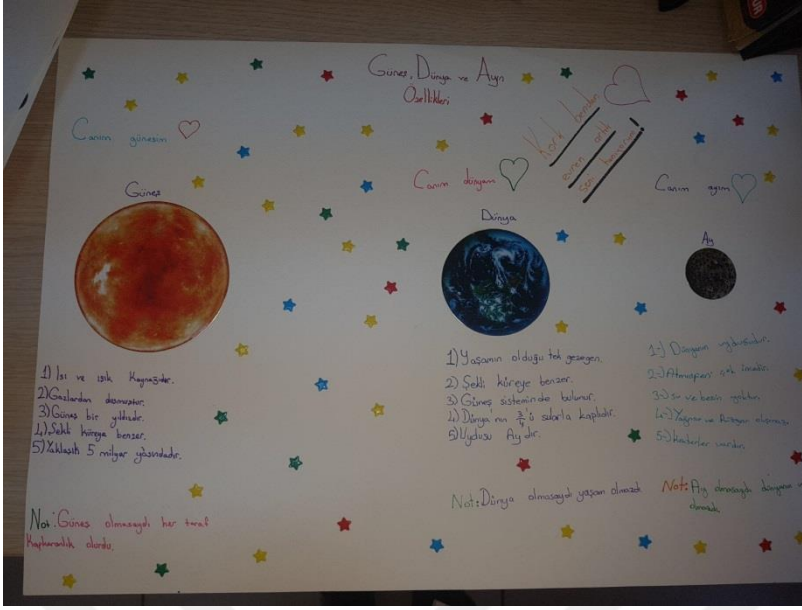 Güneş, Dünya ve Ayın
Özellikleri
Canım güneşim
Kork benden
evren artık
seni tanıyorum!
Canım dünyam
Canım ayım
Güneş
1) Isı ve ışık kaynağıdır.
2) Gazlardan oluşmuştur.
3) Güneş bir yıldızdır.
4) Şekli küreye benzer.
5) Yaklaşık 5 milyar yaşındadır.
Not: Güneş olmasaydı her taraf
kapkaranlık olurdu.
Dünya
1) Yaşamın olduğu tek gezegen.
2) Şekli küreye benzer.
3) Güneş sisteminde bulunur.
4) Dünya'nın 3/4'ü sularla kaplıdır.
5) Uydusu Ay'dır.
Not: Dünya olmasaydı yaşam olmazdı
Ay
1-) Dünyanın uydusudur.
2-) Atmosferi çok incedir.
3-) Su ve besin yoktur.
4-) Yağmur ve Rüzgar oluşmaz
5-) kraterler vardır.
Not: Ay olmasaydı dünyanın
olmazdı